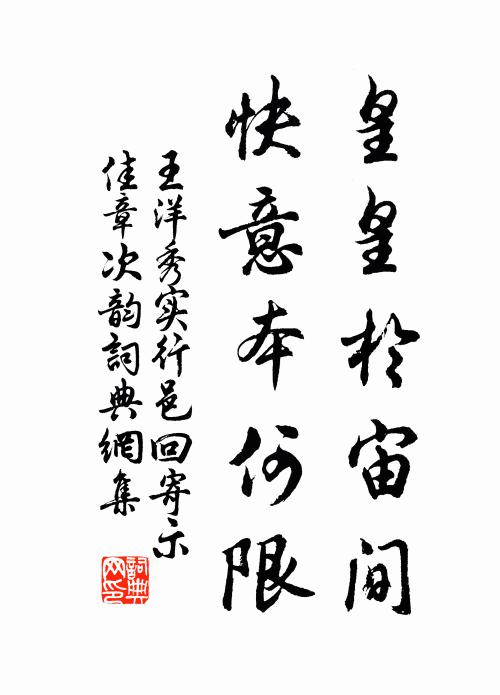 皇皇於宙间
快意本何限
王洋秀实行邑回寄示
佳章次韵詞典網集
詞典网印